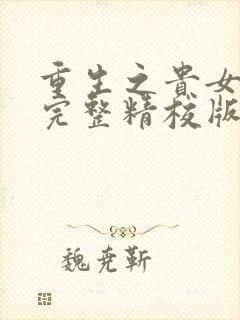 重生之貴女
完整精校版
魏尭靳